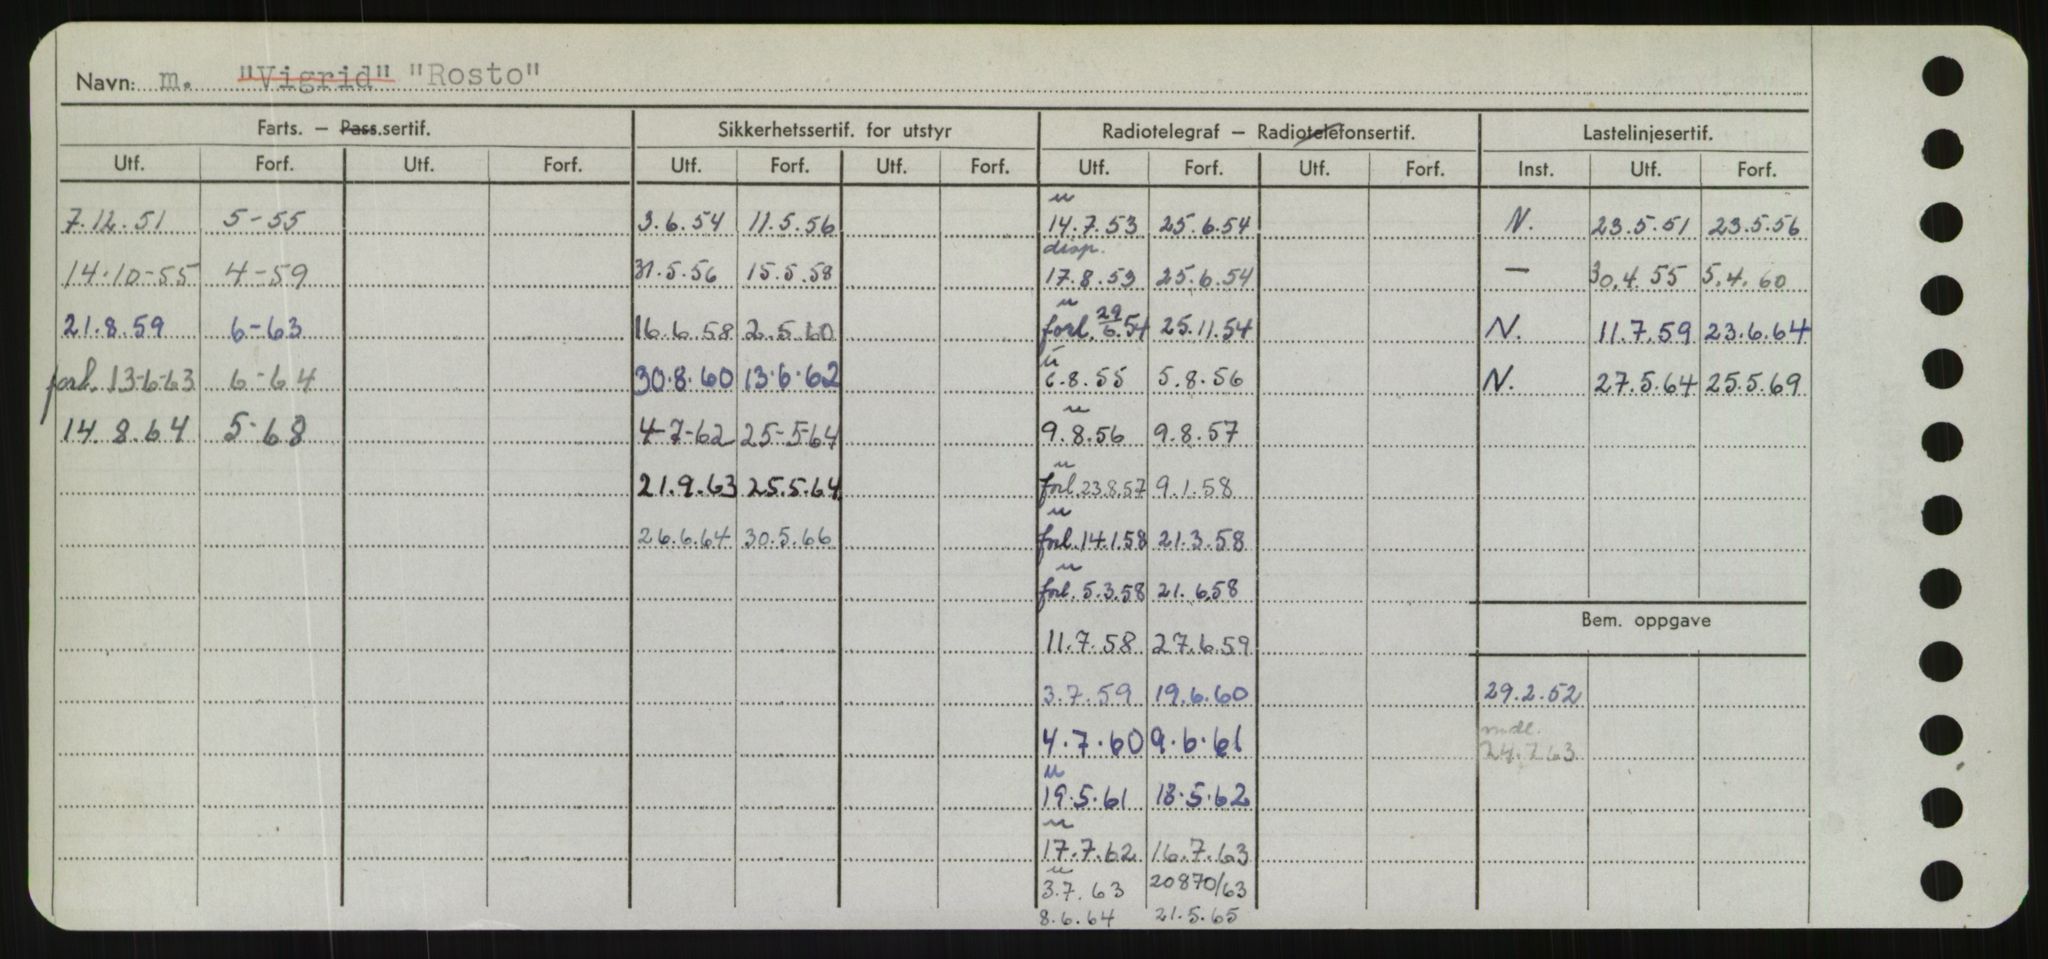 Navn: m. "Vigrid" "Rosto"
Farts. – Pass.sertif. Sikkerhetssertif. for utstyr Radiotelegraf – Radiotelefonsertif. Lastelinjesertif.
Utf. Forf. Utf. Forf. Utf. Forf. Utf. Forf. Utf. Forf. Utf. Forf. Inst. Utf. Forf.
u
7.12.51 5-55 3.6.54 11.5.56 14.7.53 25.6.54 N. 23.5.51 23.5.56
disp.
14-10-55 4-59 31.5.56 15.5.58 17.8.53 25.6.54 — 30.4.55 5.4.60
u
21.8.59 6-63 16.6.58 2.5.60 forl. 29/6.54 25.11.54 N. 11.7.59 23.6.64
u
forl. 13-6-63 6-64 30.8.60 13.6.62 6.8.55 5.8.56 N. 27.5.64 25.5.69
u
14.8.64 5-68 4-7-62 25-5-64 9.8.56 9.8.57
u
21.9.63 25.5.64 forl. 23.8.57 9.1.58
u
26.6.64 30.5.66 forl. 14.1.58 21.3.58
u
forl. 5.3.58 21.6.58
Bem. oppgave
11.7.58 27.6.59
3.7.59 19.6.60 29.2.52
mdl.
4.7.60 9.6.61 24.7.63
u
19.5.61 18.5.62
u
17.7.62 16.7.63
u
3.7.63 20870/63
8.6.64 21.5.65